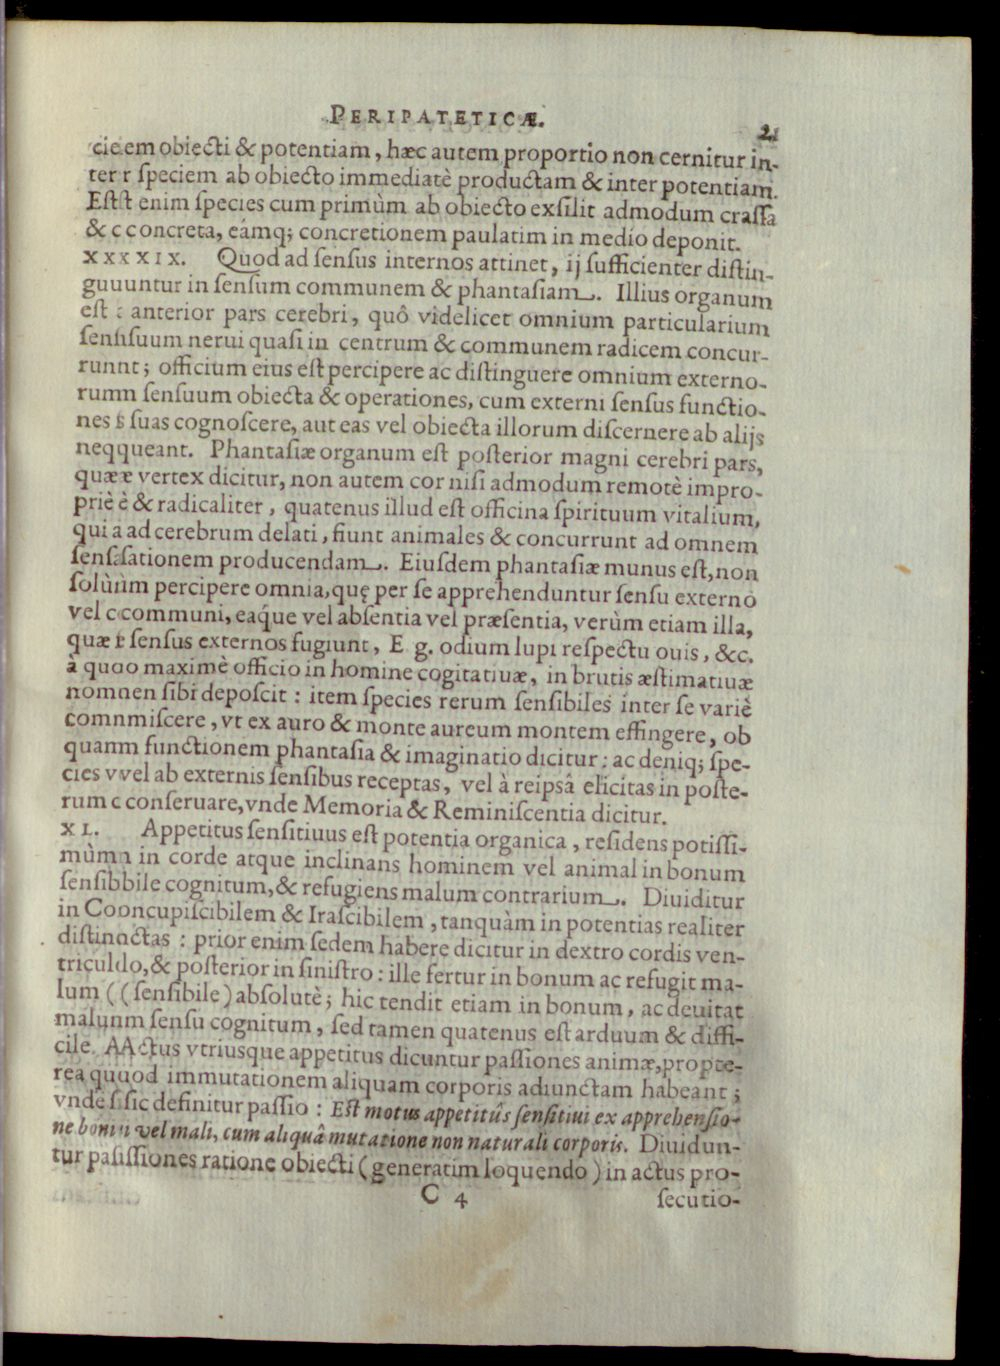 PERIPATETICÆ.
2
cieem obiecti & potentiam, hæc autem proportio non cernitur in-
ter r ſpeciem ab obiecto immediatè productam & inter potentiam.
Eſtſt enim ſpecies cum primùm ab obiecto exſilit admodum craſſa
& c concreta, eámq; concretionem paulatim in medio deponit.
XXXXIX. Quod ad ſenſus internos attinet, ij ſufficienter diſtin-
guuuntur in ſenſum communem & phantaſiam. Illius organum
eſt : anterior pars cerebri, quô videlicet omnium particularium
ſenſiſuum nerui quaſi in centrum & communem radicem concur-
runnt; officium eius eſt percipere ac diſtinguere omnium externo-
rumn ſenſuum obiecta & operationes, cum externi ſenſus functio-
nes s ſuas cognoſcere, aut eas vel obiecta illorum diſcernere ab alijs
neqqueant. Phantaſiæ organum eſt poſterior magni cerebri pars,
quææ vertex dicitur, non autem cor niſi admodum remotè impro-
priè è & radicaliter, quatenus illud eſt officina ſpirituum vitalium,
qui a ad cerebrum delati, fiunt animales & concurrunt ad omnem
ſenſaſationem producendam. Eiuſdem phantaſiæ munus eſt, non
ſolùùm percipere omnia, quę per ſe apprehenduntur ſenſu externo
vel c communi, eaq́ue vel abſentia vel præſentia, verùm etiam illa,
quæ ſ ſenſus externos fugiunt, E g. odium lupi reſpectu ouis, &c.
à quoo maximè officio in homine cogitatiuæ, in brutis æſtimatiuæ
nomnen ſibi depoſcit : item ſpecies rerum ſenſibiles inter ſe variè
comnmiſcere, vt ex auro & monte aureum montem effingere, ob
quanm functionem phantaſia & imaginatio dicitur : ac deniq; ſpe-
cies vvel ab externis ſenſibus receptas, vel à reipsâ elicitas in poſte-
rum c conſeruare, vnde Memoria & Reminiſcentia dicitur.
XL. Appetitus ſenſitiuus eſt potentia organica, reſidens potiſſi-
mùmn in corde atque inclinans hominem vel animal in bonum
ſenſibbile cognitum, & refugiens malum contrarium. Diuiditur
in Cooncupiſcibilem & Iraſcibilem, tanquàm in potentias realiter
diſtinnctas : prior enim ſedem habere dicitur in dextro cordis ven-
triculdo, & poſterior in ſiniſtro : ille fertur in bonum ac refugit ma-
lum ((ſenſibile) abſolutè; hic tendit etiam in bonum, ac deuitat
malunm ſenſu cognitum, ſed tamen quatenus eſt arduum & diffi-
cile. AActus vtriusque appetitus dicuntur paſſiones animæ, propte-
rea quuod immutationem aliquam corporis adiunctam habeant;
vnde ſ ſic definitur paſſio : Eſt motus appetitûs ſenſitiui ex apprehenſio-
ne bonii vel mali, cum aliquâ mutatione non naturali corporis. Diuidun-
tur paſiſſiones ratione obiecti (generatim loquendo) in actus pro-
C 4
ſecutio-